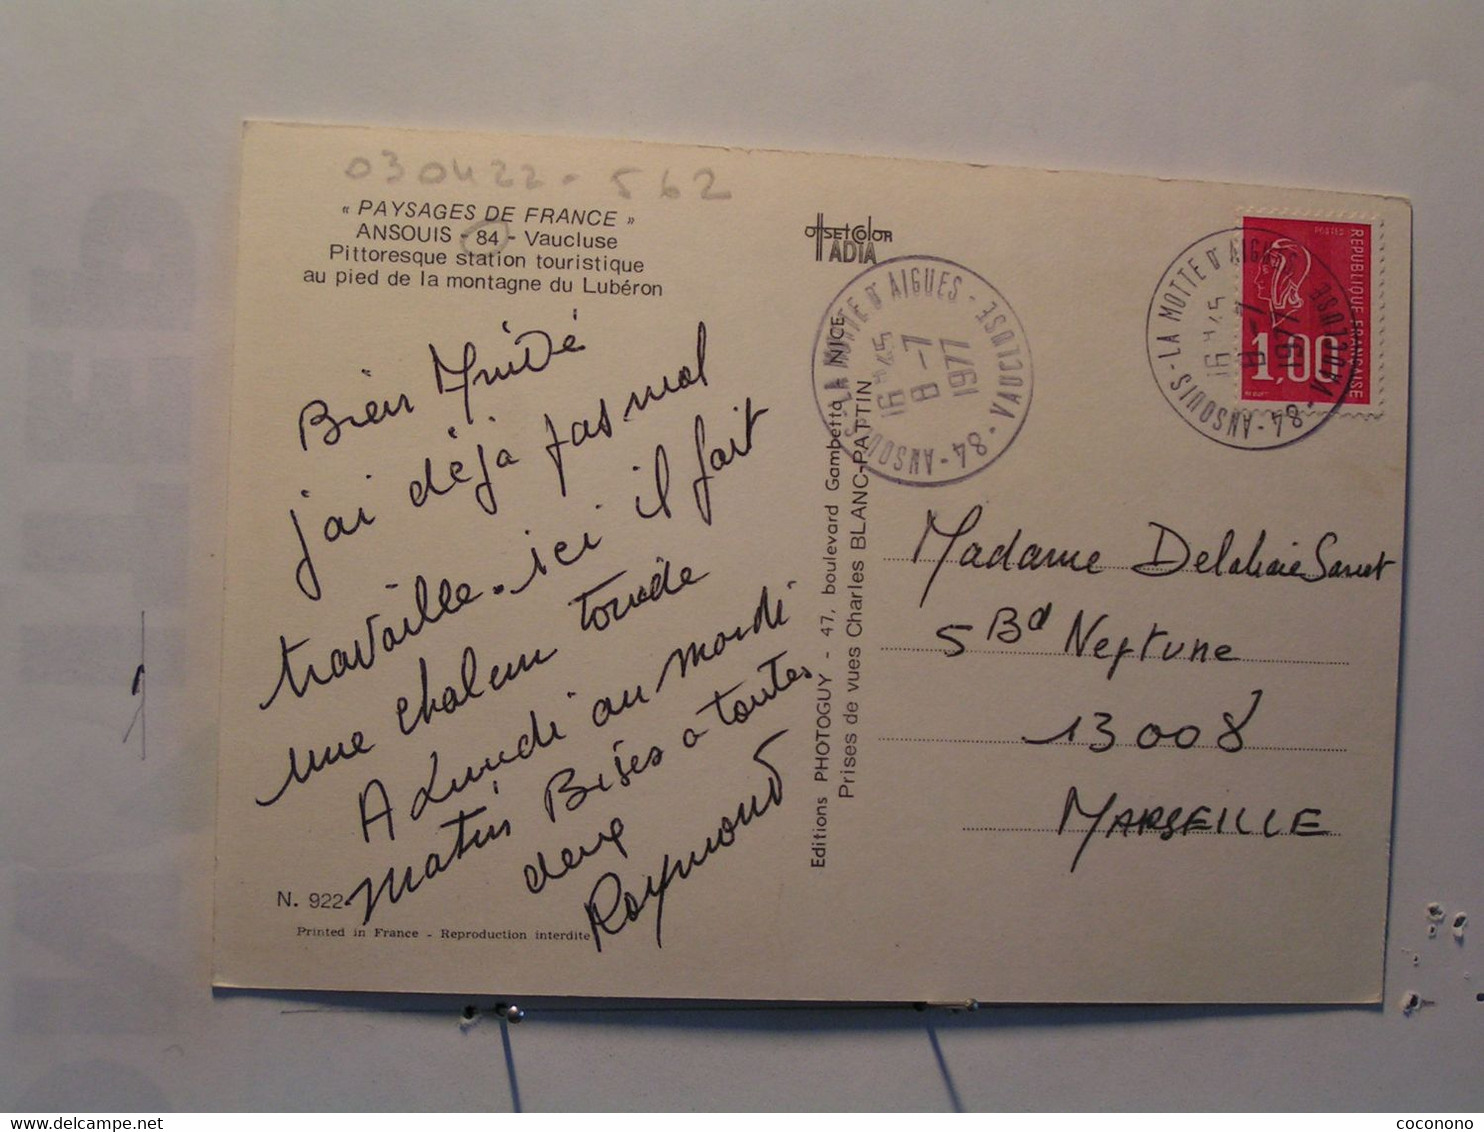 030422 - 562
« PAYSAGES DE FRANCE »
ANSOUIS - 84 - Vaucluse
Pittoresque station touristique
au pied de la montagne du Lubéron
OffSETCOlOR
ADIA
Bien
j'ai déjà pas mal
travaillé. ici il fait
une chaleur torride
A Lundi au mardi
matin Bises a toutes
deux
Raymond
N. 922
Printed in France - Reproduction interdite
Editions PHOTOGUY - 47, boulevard Gambetta NICE
Prises de vues Charles BLANC-PATTIN
84-ANSOUIS-LA MOTTE D'AIGUES - VAUCLUSE
16H45
8-7
1977
84-ANSOUIS-LA MOTTE D'AIGUES - VAUCLUSE
16H45
8-7
1977
POSTES
REPUBLIQUE FRANCAISE
1,00
Madame
5 Bd Neptune
13008
MARSEILLE
coconono